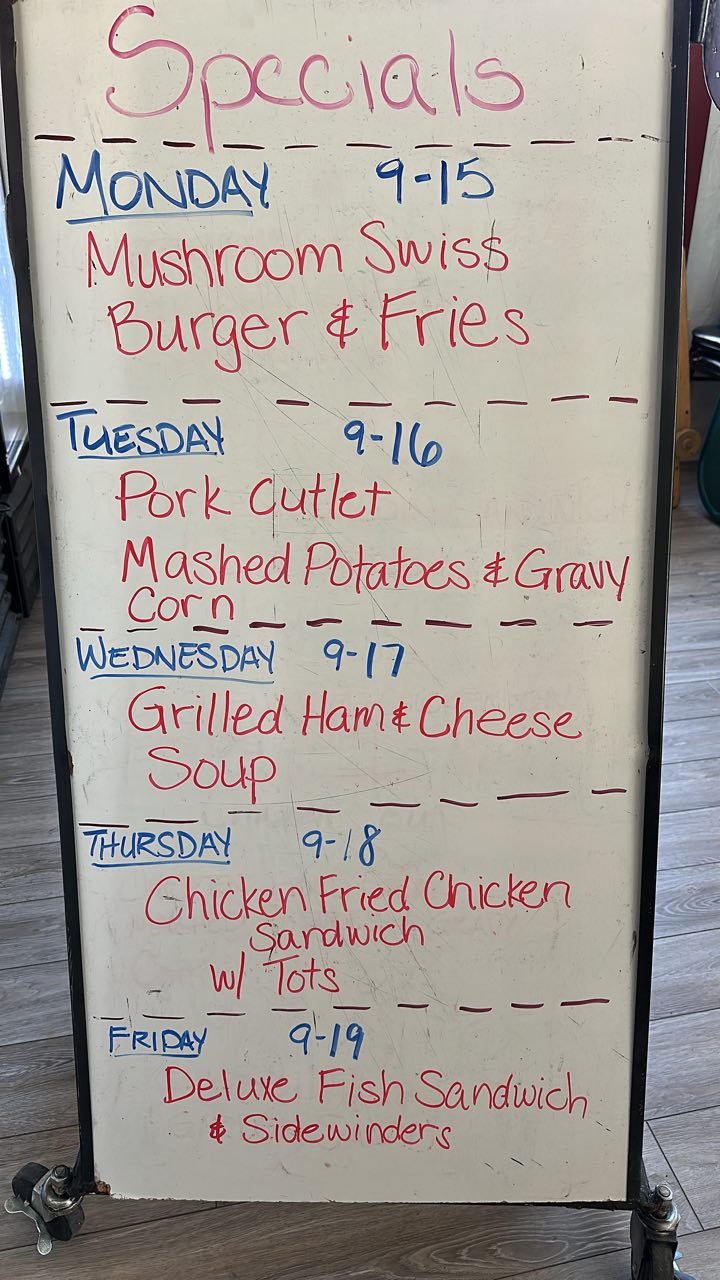 Specials
MONDAY 9-15
Mushroom Swiss
Burger & Fries
TUESDAY 9-16
Pork Cutlet
Mashed Potatoes & Gravy
Corn
WEDNESDAY 9-17
Grilled Ham & Cheese
Soup
THURSDAY 9-18
Chicken Fried Chicken
Sandwich
w/ Tots
FRIDAY 9-19
Deluxe Fish Sandwich
& Sidewinders